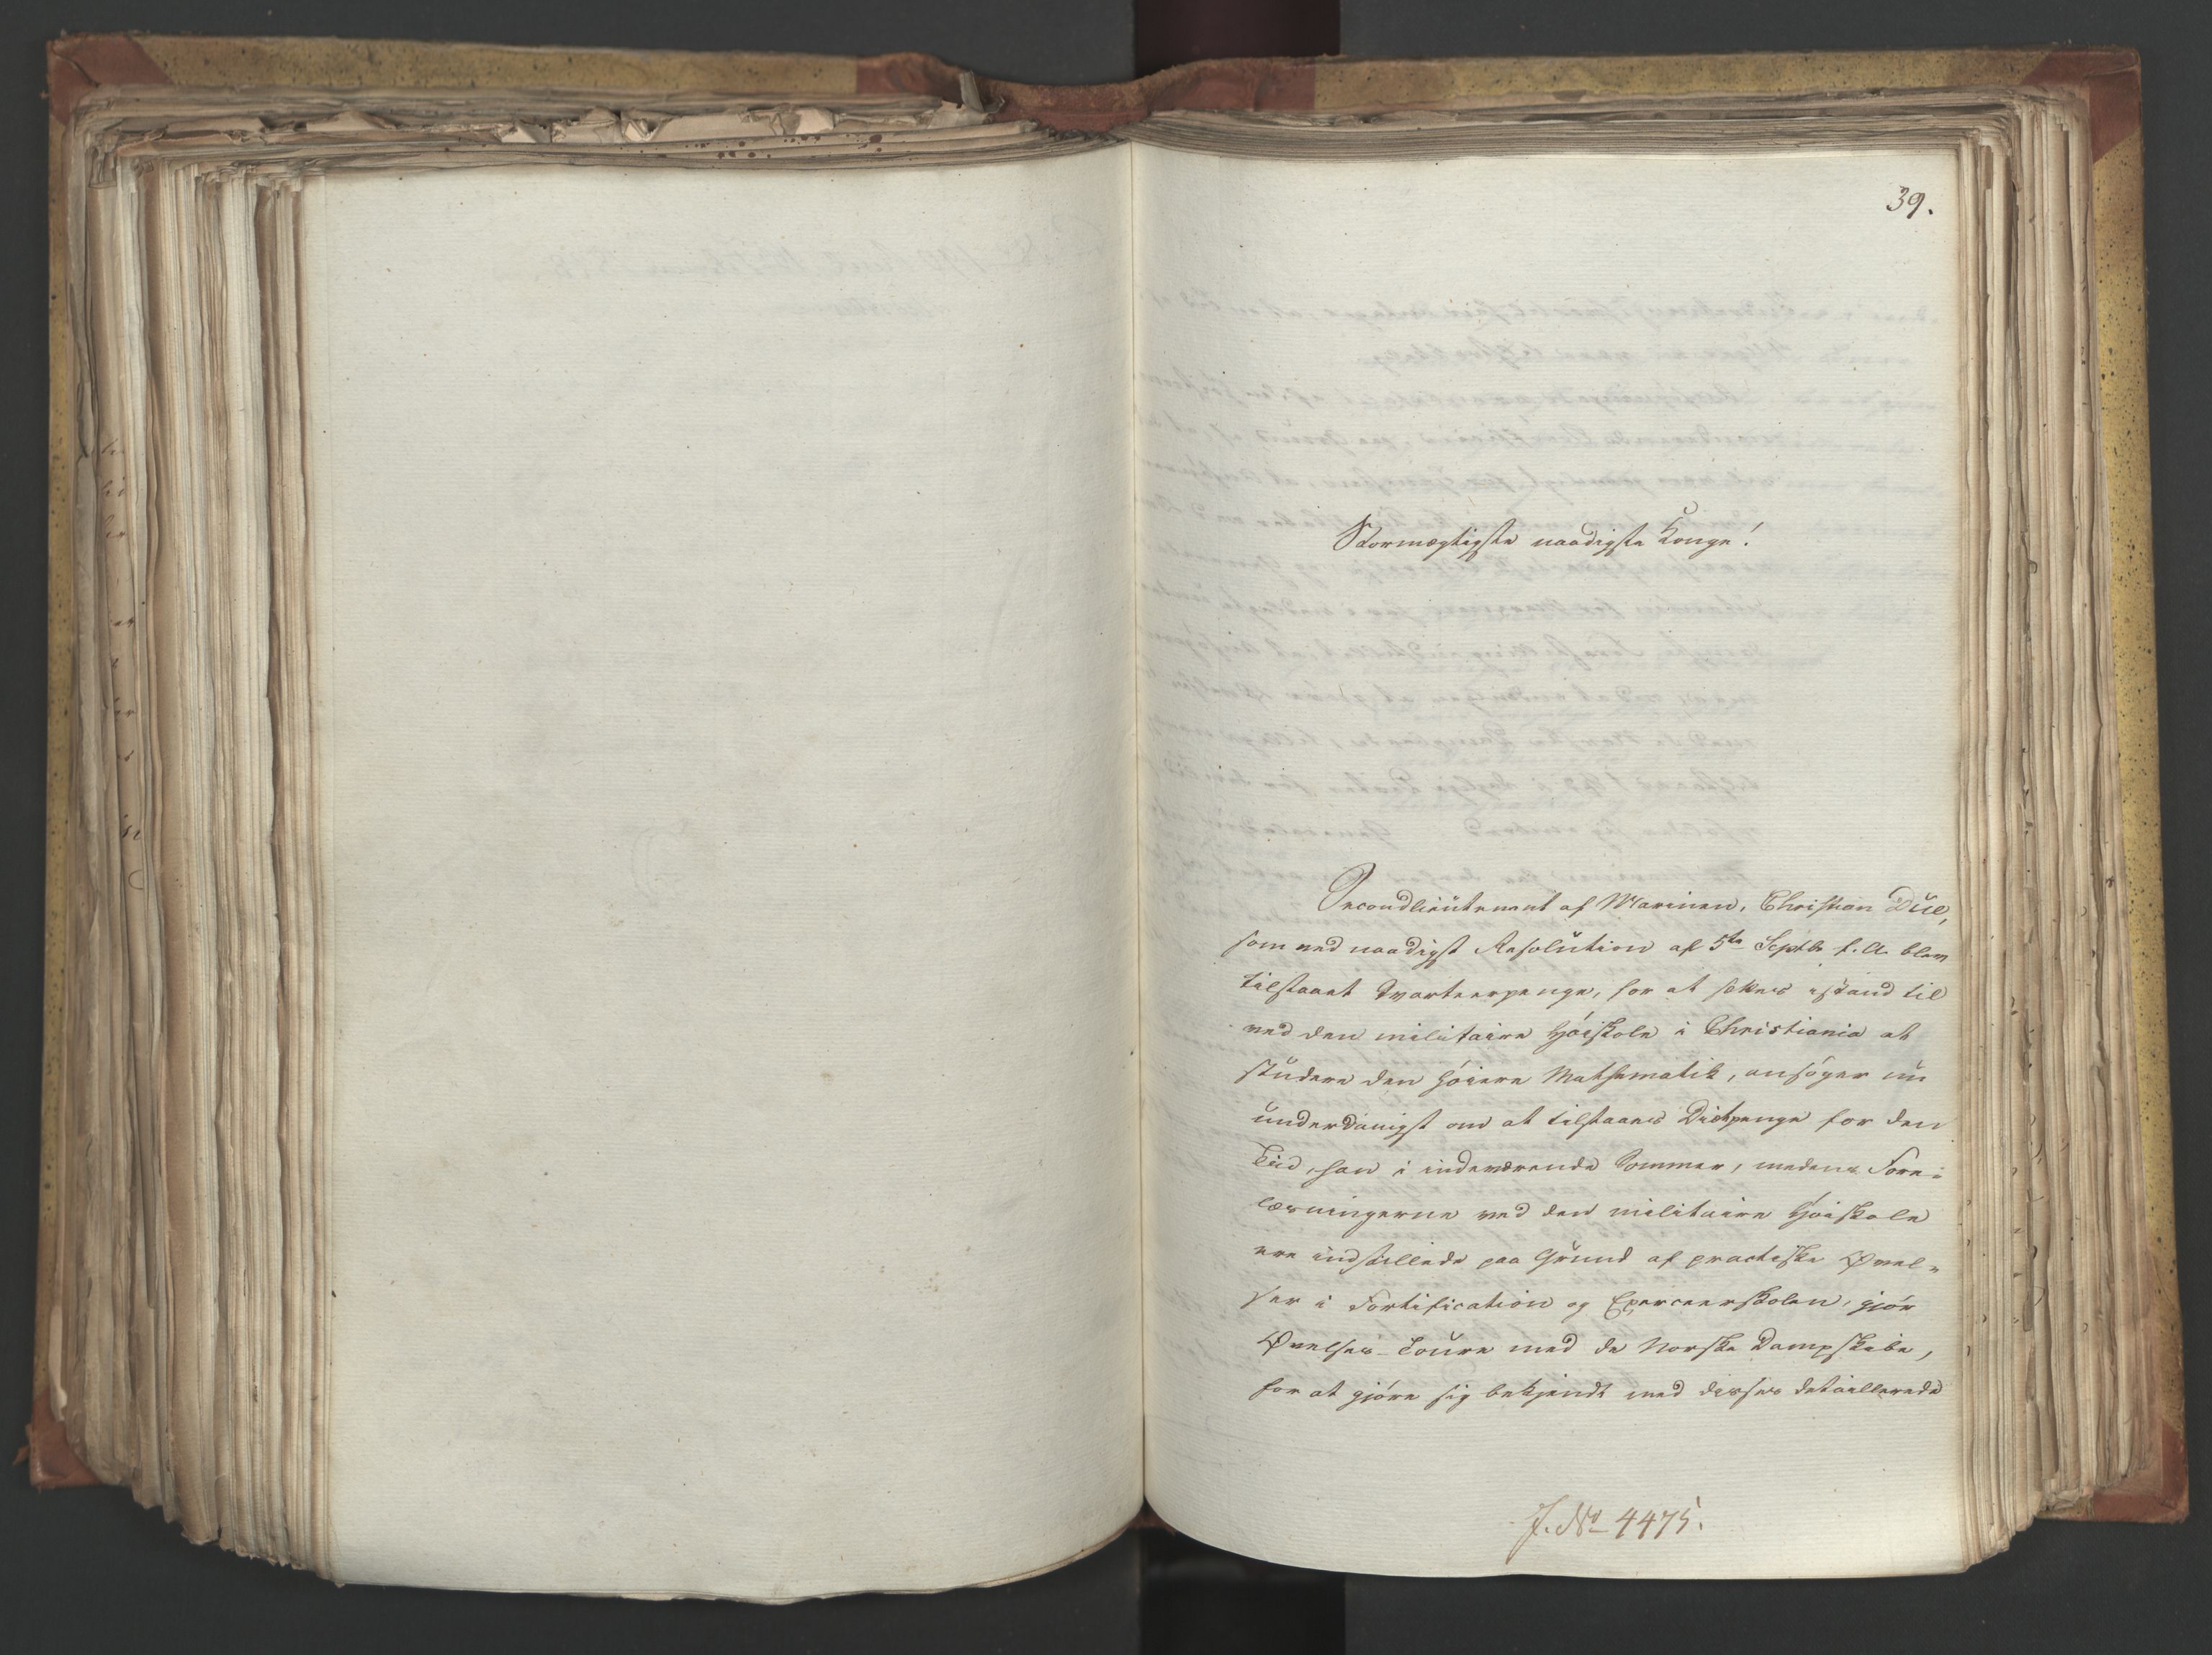 39.
Stormægtigste naadigste Konge!
Secondlieutenant af Marinen, Christian Due,
som ved naadigst Resolution af 5te Septbr f. A. blev
tilstaaet Qvarteerpenge, for at sættes istand til
ved den militaire Høiskole i Christiania at
studere den høiere Mathematik, ansøger nu
underdanigst om at tilstaaes Diætpenge for den
Tiid, han i indeværende Sommer, medens Fore-
læsningerne ved den militaire Høiskole
ere indstillede paa Grund af practiske Øvel-
ser i Fortification og Exerceerskolen, gjør
Øvelses-Toure med de Norske Dampskibe,
for at gjøre sig bekjendt med disses detaillerede
J. No 4475.